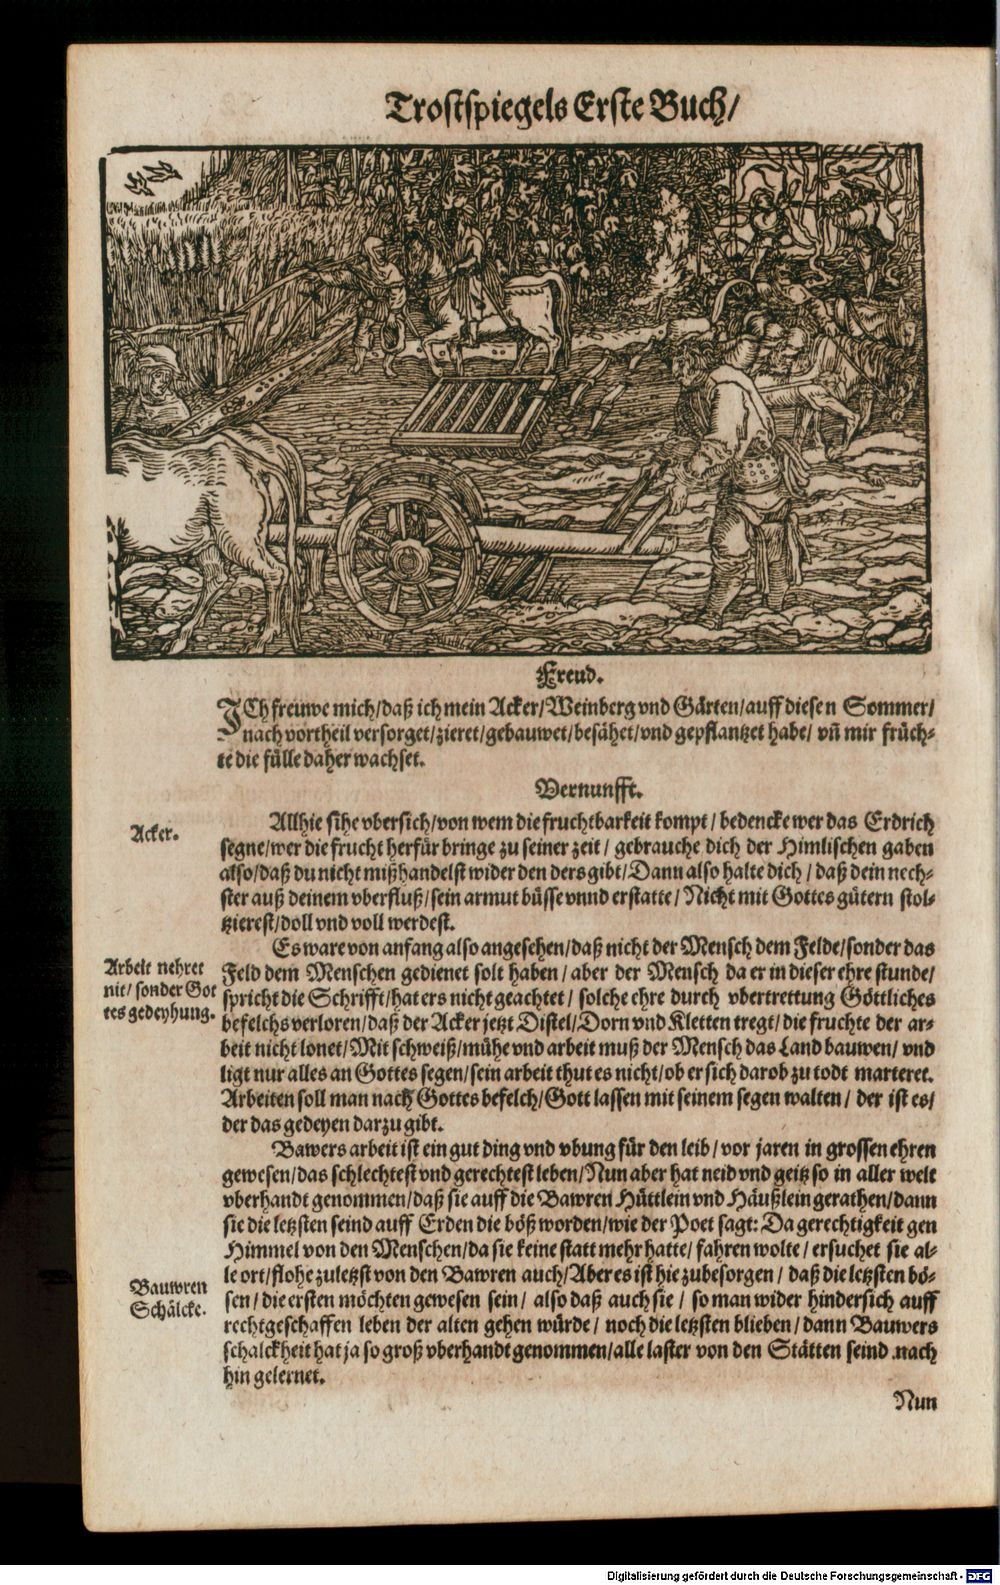 Trostspiegels Erste Buch/
Freud.
ICh freuwe mich/daß ich mein Acker/Weinberg vnd Gärten/auff diesen Sommer/
nach vortheil versorget/zieret/gebauwet/besähet/vnd gepflantzet habt/ vñ mir früch-
te die fülle daher wachset.
Vernunfft.
Acker.
Allhie sihe vbersich/von wem die fruchtbarkeit kompt/ bedencke wer das Erdrich
segne/wer die frucht herfür bringe zu seiner zeit/ gebrauche dich der Himlischen gaben
also/daß du nicht mißhandelst wider den ders gibt/Dann also halte dich/ daß dein nech-
ster auß deinem vberfluß/sein armut büsse vnnd erstatte/ Nicht mit Gottes gütern stol-
tzierest/doll vnd voll werdest.
Es ware von anfang also angesehen/daß nicht der Mensch dem Felde/sonder das
Arbeit nehret
nit/ sonder Got
tes gedeyhung.
Feld dem Menschen gedienet solt haben/ aber der Mensch da er in dieser ehre stunde/
spricht die Schrifft/hat ers nicht geachtet/ solche ehre durch vbertrettung Göttliches
befelchs verloren/daß der Acker jetzt Distel/Dorn vnd Kletten tregt/die fruchte der ar-
beit nicht lonet/Mit schweiß/mühe vnd arbeit muß der Mensch das Land bauwen/ vnd
ligt nur alles an Gottes segen/sein arbeit thut es nicht/ob er sich darob zu todt marteret.
Arbeiten soll man nach Gottes befelch/Gott lassen mit seinem segen walten/ der ist es/
der das gedeyen darzu gibt.
Bawers arbeit ist ein gut ding vnd vbung für den leib/ vor jaren in grossen ehren
gewesen/das schlechtest vnd gerechtest leben/Nun aber hat neid vnd geitz so in aller welt
vberhandt genommen/daß sie auff die Bawren Hüttlein vnd Häußlein gerathen/dann
sie die letzsten seind auff Erden die böß worden/wie der Poet sagt: Da gerechtigkeit gen
Himmel von den Menschen/da sie keine statt mehr hatte/ fahren wolte/ ersuchet sie al-
le ort/flohe zuletzst von den Bawren auch/Aber es ist hie zubesorgen/ daß die letzsten bö-
Bauwren
Schälcke.
sen/die ersten möchten gewesen sein/ also daß auch sie/ so man wider hindersich auff
rechtgeschaffen leben der alten gehen würde/ noch die letzsten blieben/dann Bauwers
schalckheit hat ja so groß vberhandt genommen/alle laster von den Stätten seind nach
hin gelernet.
Nun
Digitalisierung gefördert durch die Deutsche Forschungsgemeinschaft - DFG